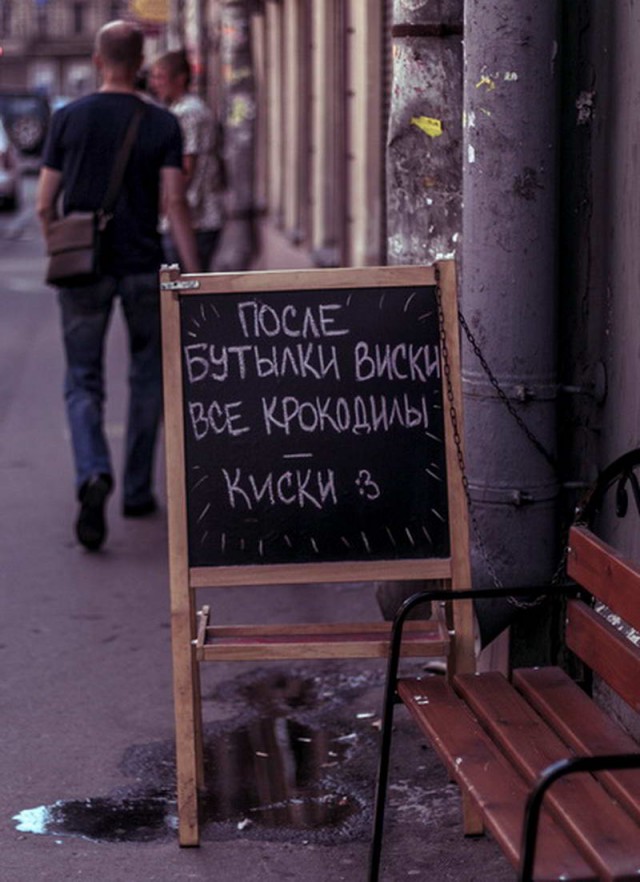 ПОСЛЕ
БУТЫЛКИ ВИСКИ
ВСЕ КРОКОДИЛЫ
—
КИСКИ :3